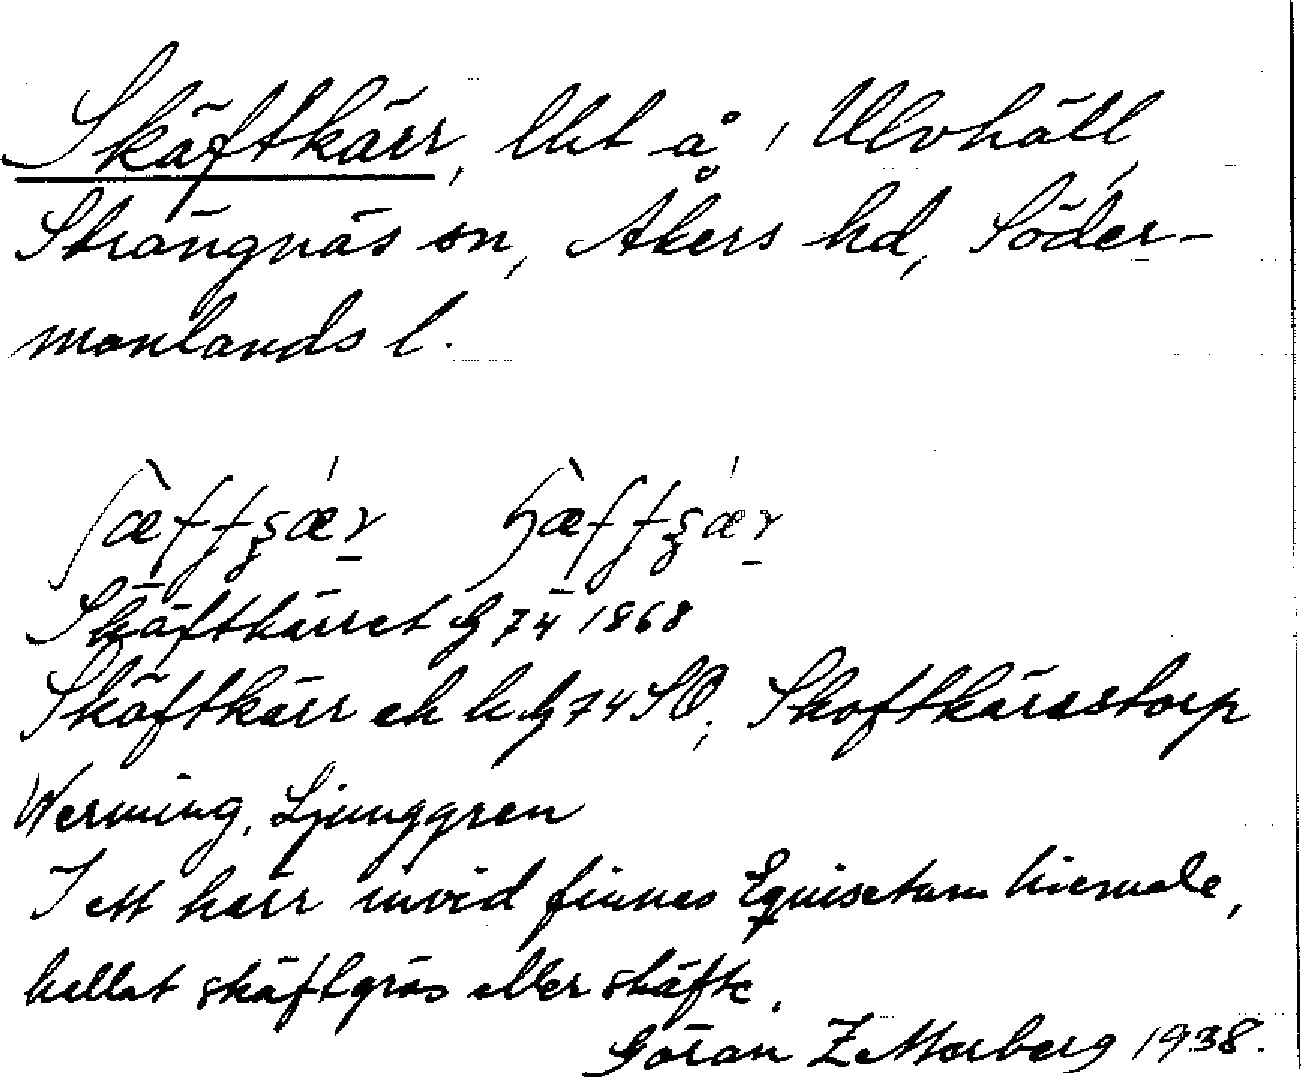 Skäftkärr, lht å, Ulvhäll,
Strängnäs sn, Åkers hd, Söder-
manlands l.
Skäftkärret G 74 1868
Skäftkärr ek k G 74 SO; Skoftkärrstorp
Werming, Ljunggren
I ett kärr invid finnes Equisetum hiemale,
kallat skäftgräs eller skäfte.
Göran Zetterberg 1938.